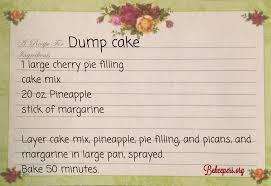 A Recipe For Dump cake
Ingredients
1 large cherry pie filling
cake mix
20 oz. Pineapple
stick of margarine
Layer cake mix, pineapple, pie filling, and picans, and
margarine in large pan, sprayed.
Bake 50 minutes.
Bekeepers.org